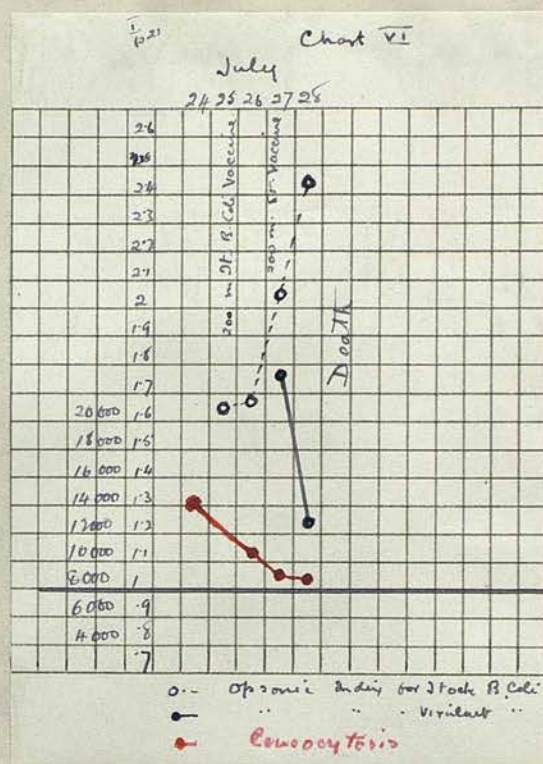 Chart VI
July
24 25 26 27 28
2.6
2.4
2.3
2.2
2.1
2
1.9
1.8
1.7
20000 1.6
18000 1.5
16000 1.4
14000 1.3
12000 1.2
10000 1.1
8000 1
6000 .9
4000 .8
.7
200 m St. B. Coli Vaccine
200 m. St. Vaccine
Death
Opsonic Index for Stock B. Coli
" " " Virulent "
Leucocytosis